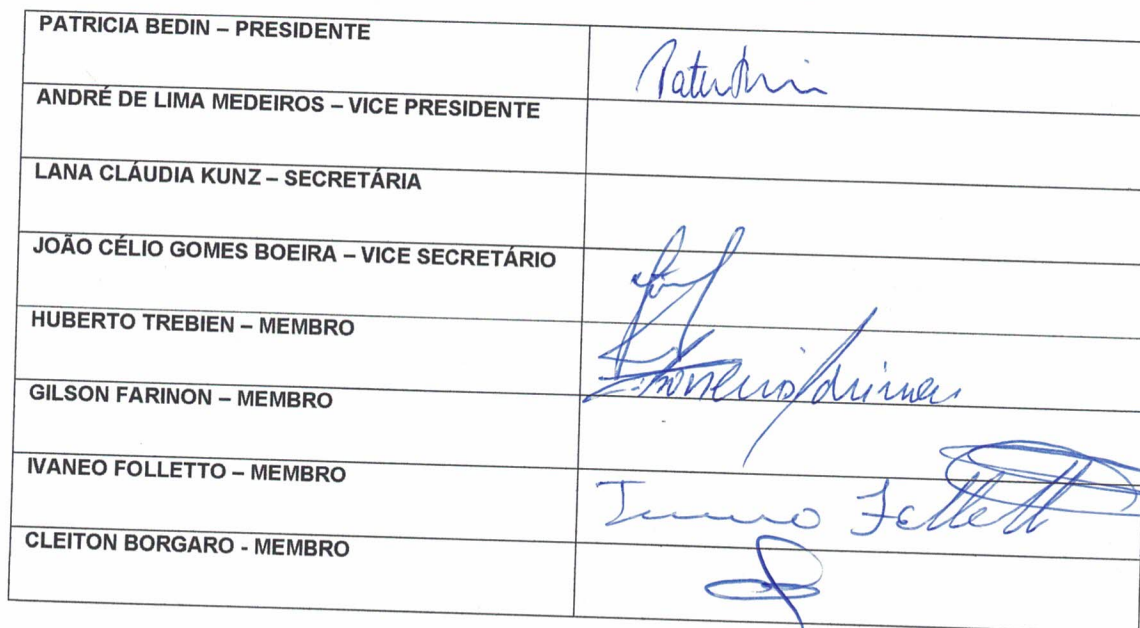 PATRICIA BEDIN – PRESIDENTE
ANDRÉ DE LIMA MEDEIROS – VICE PRESIDENTE
LANA CLÁUDIA KUNZ – SECRETÁRIA
JOÃO CÉLIO GOMES BOEIRA – VICE SECRETÁRIO
HUBERTO TREBIEN – MEMBRO
GILSON FARINON – MEMBRO
IVANEO FOLLETTO – MEMBRO
CLEITON BORGARO - MEMBRO